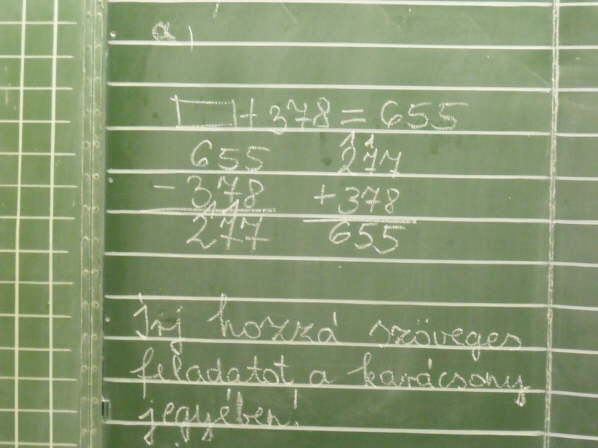 a,
□ + 378 = 655
655 277
- 378 + 378
277 655
Írj hozzá szöveges
feladatot a karácsony
jegyében!